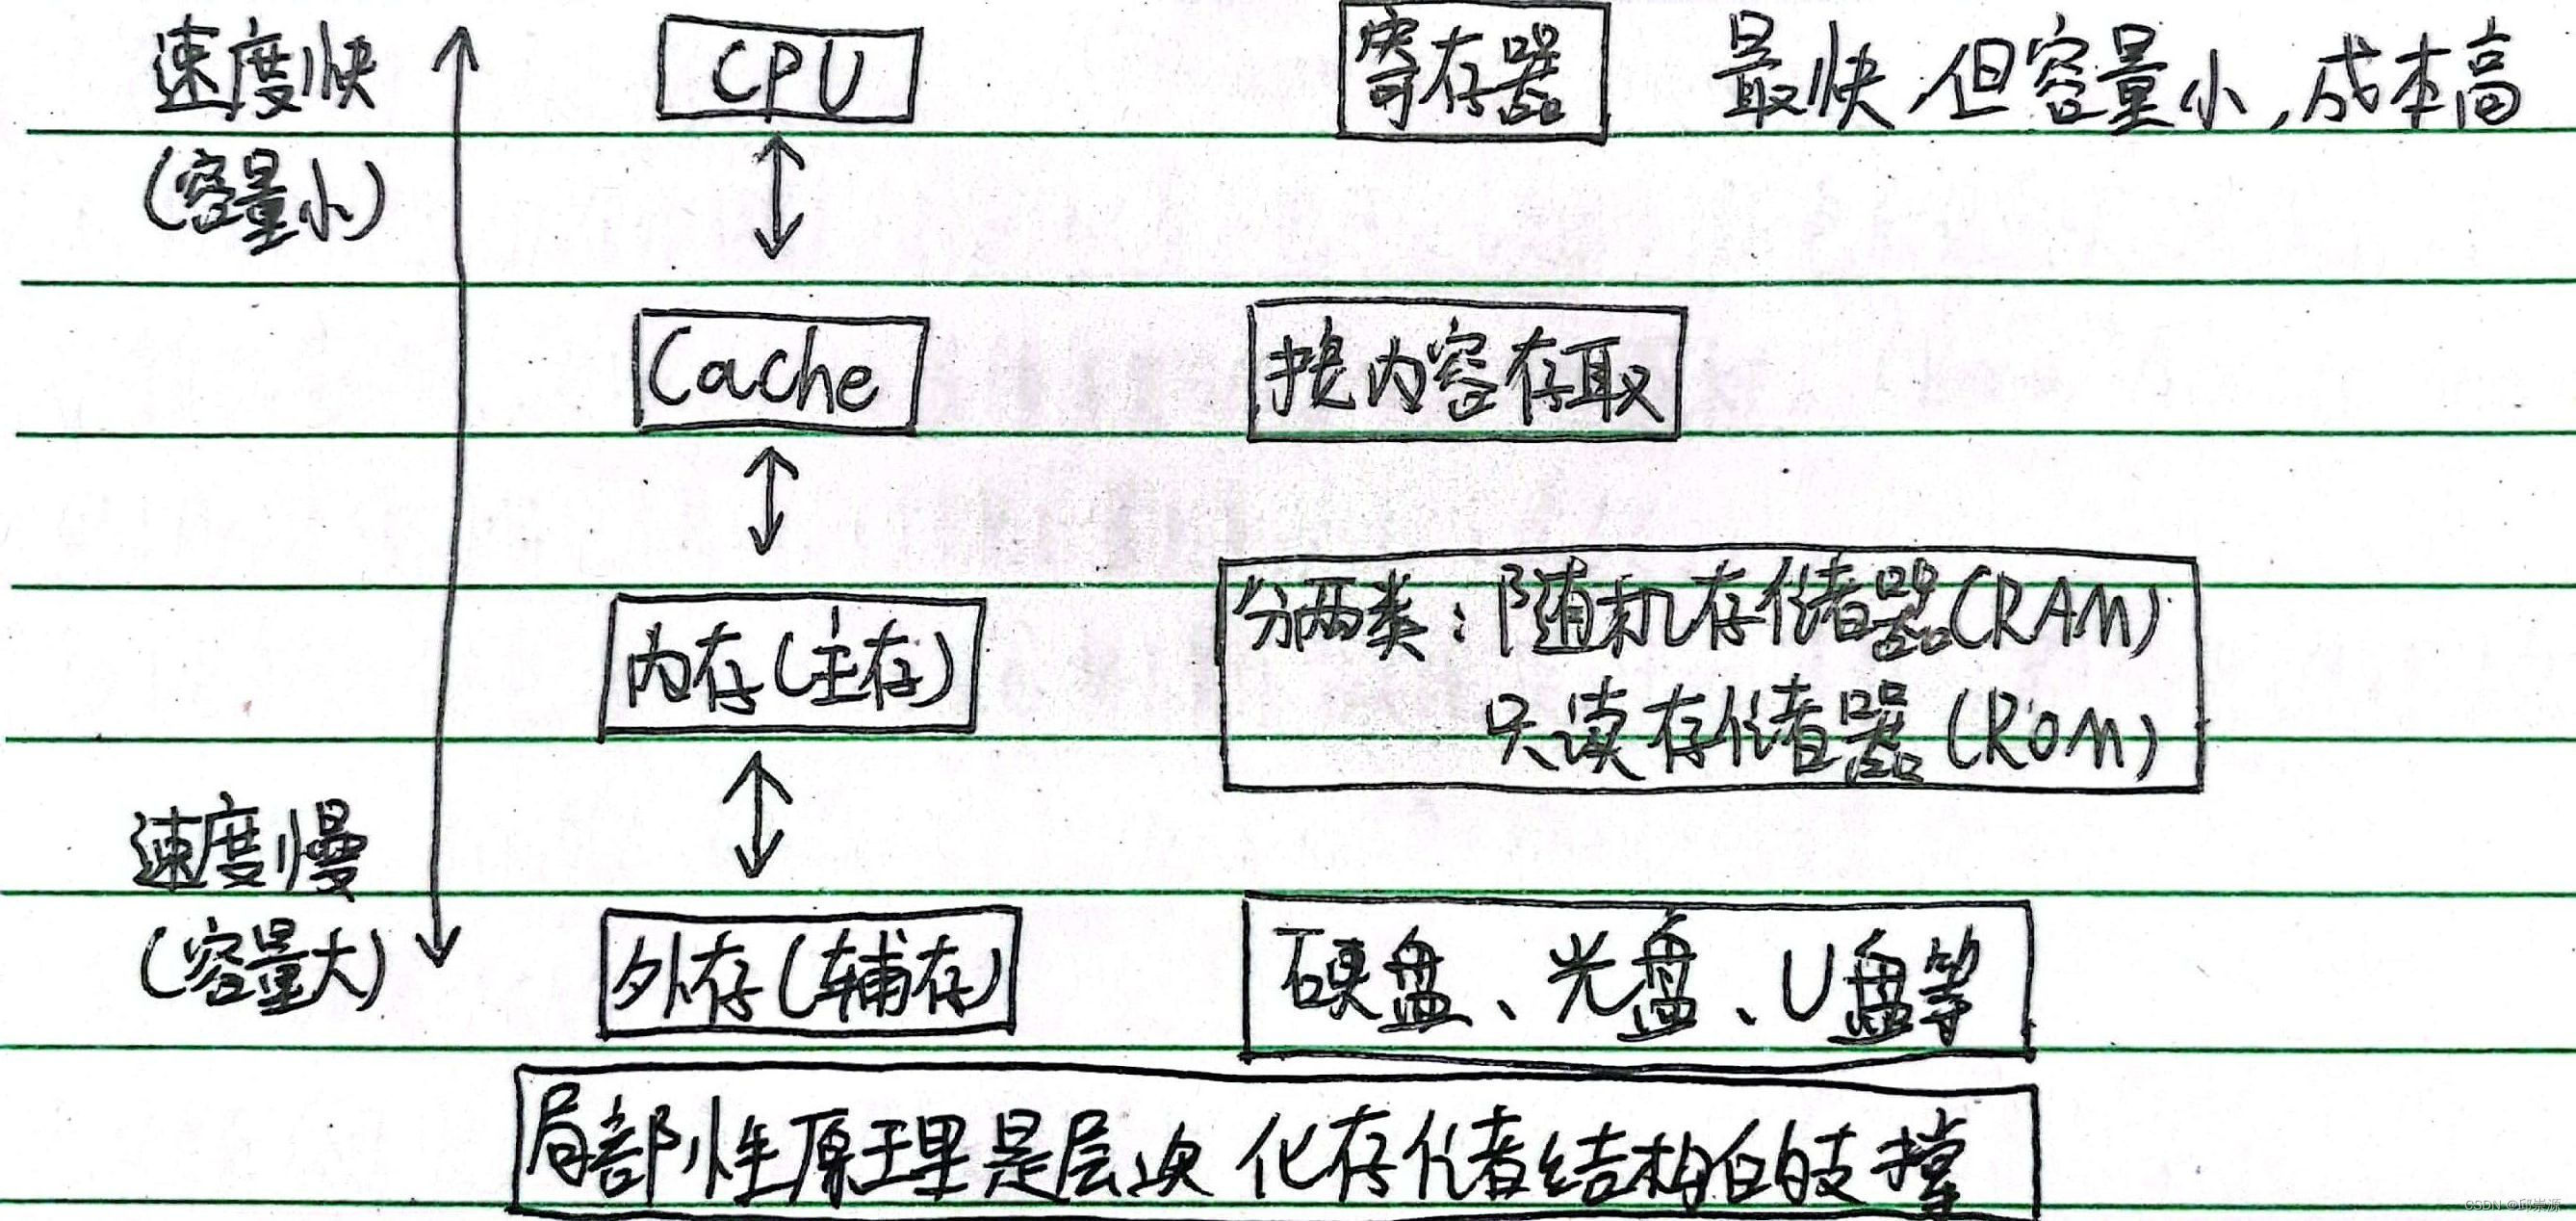 速度快 CPU 寄存器 最快,但容量小,成本高
(容量小)
Cache 按内容存取
分两类:随机存储器(RAM)
内存(主存)
只读存储器(ROM)
速度慢
(容量大) 外存(辅存) 硬盘、光盘、U盘等
局部性原理是层次化存储结构的支撑
CSDN @邱崇源